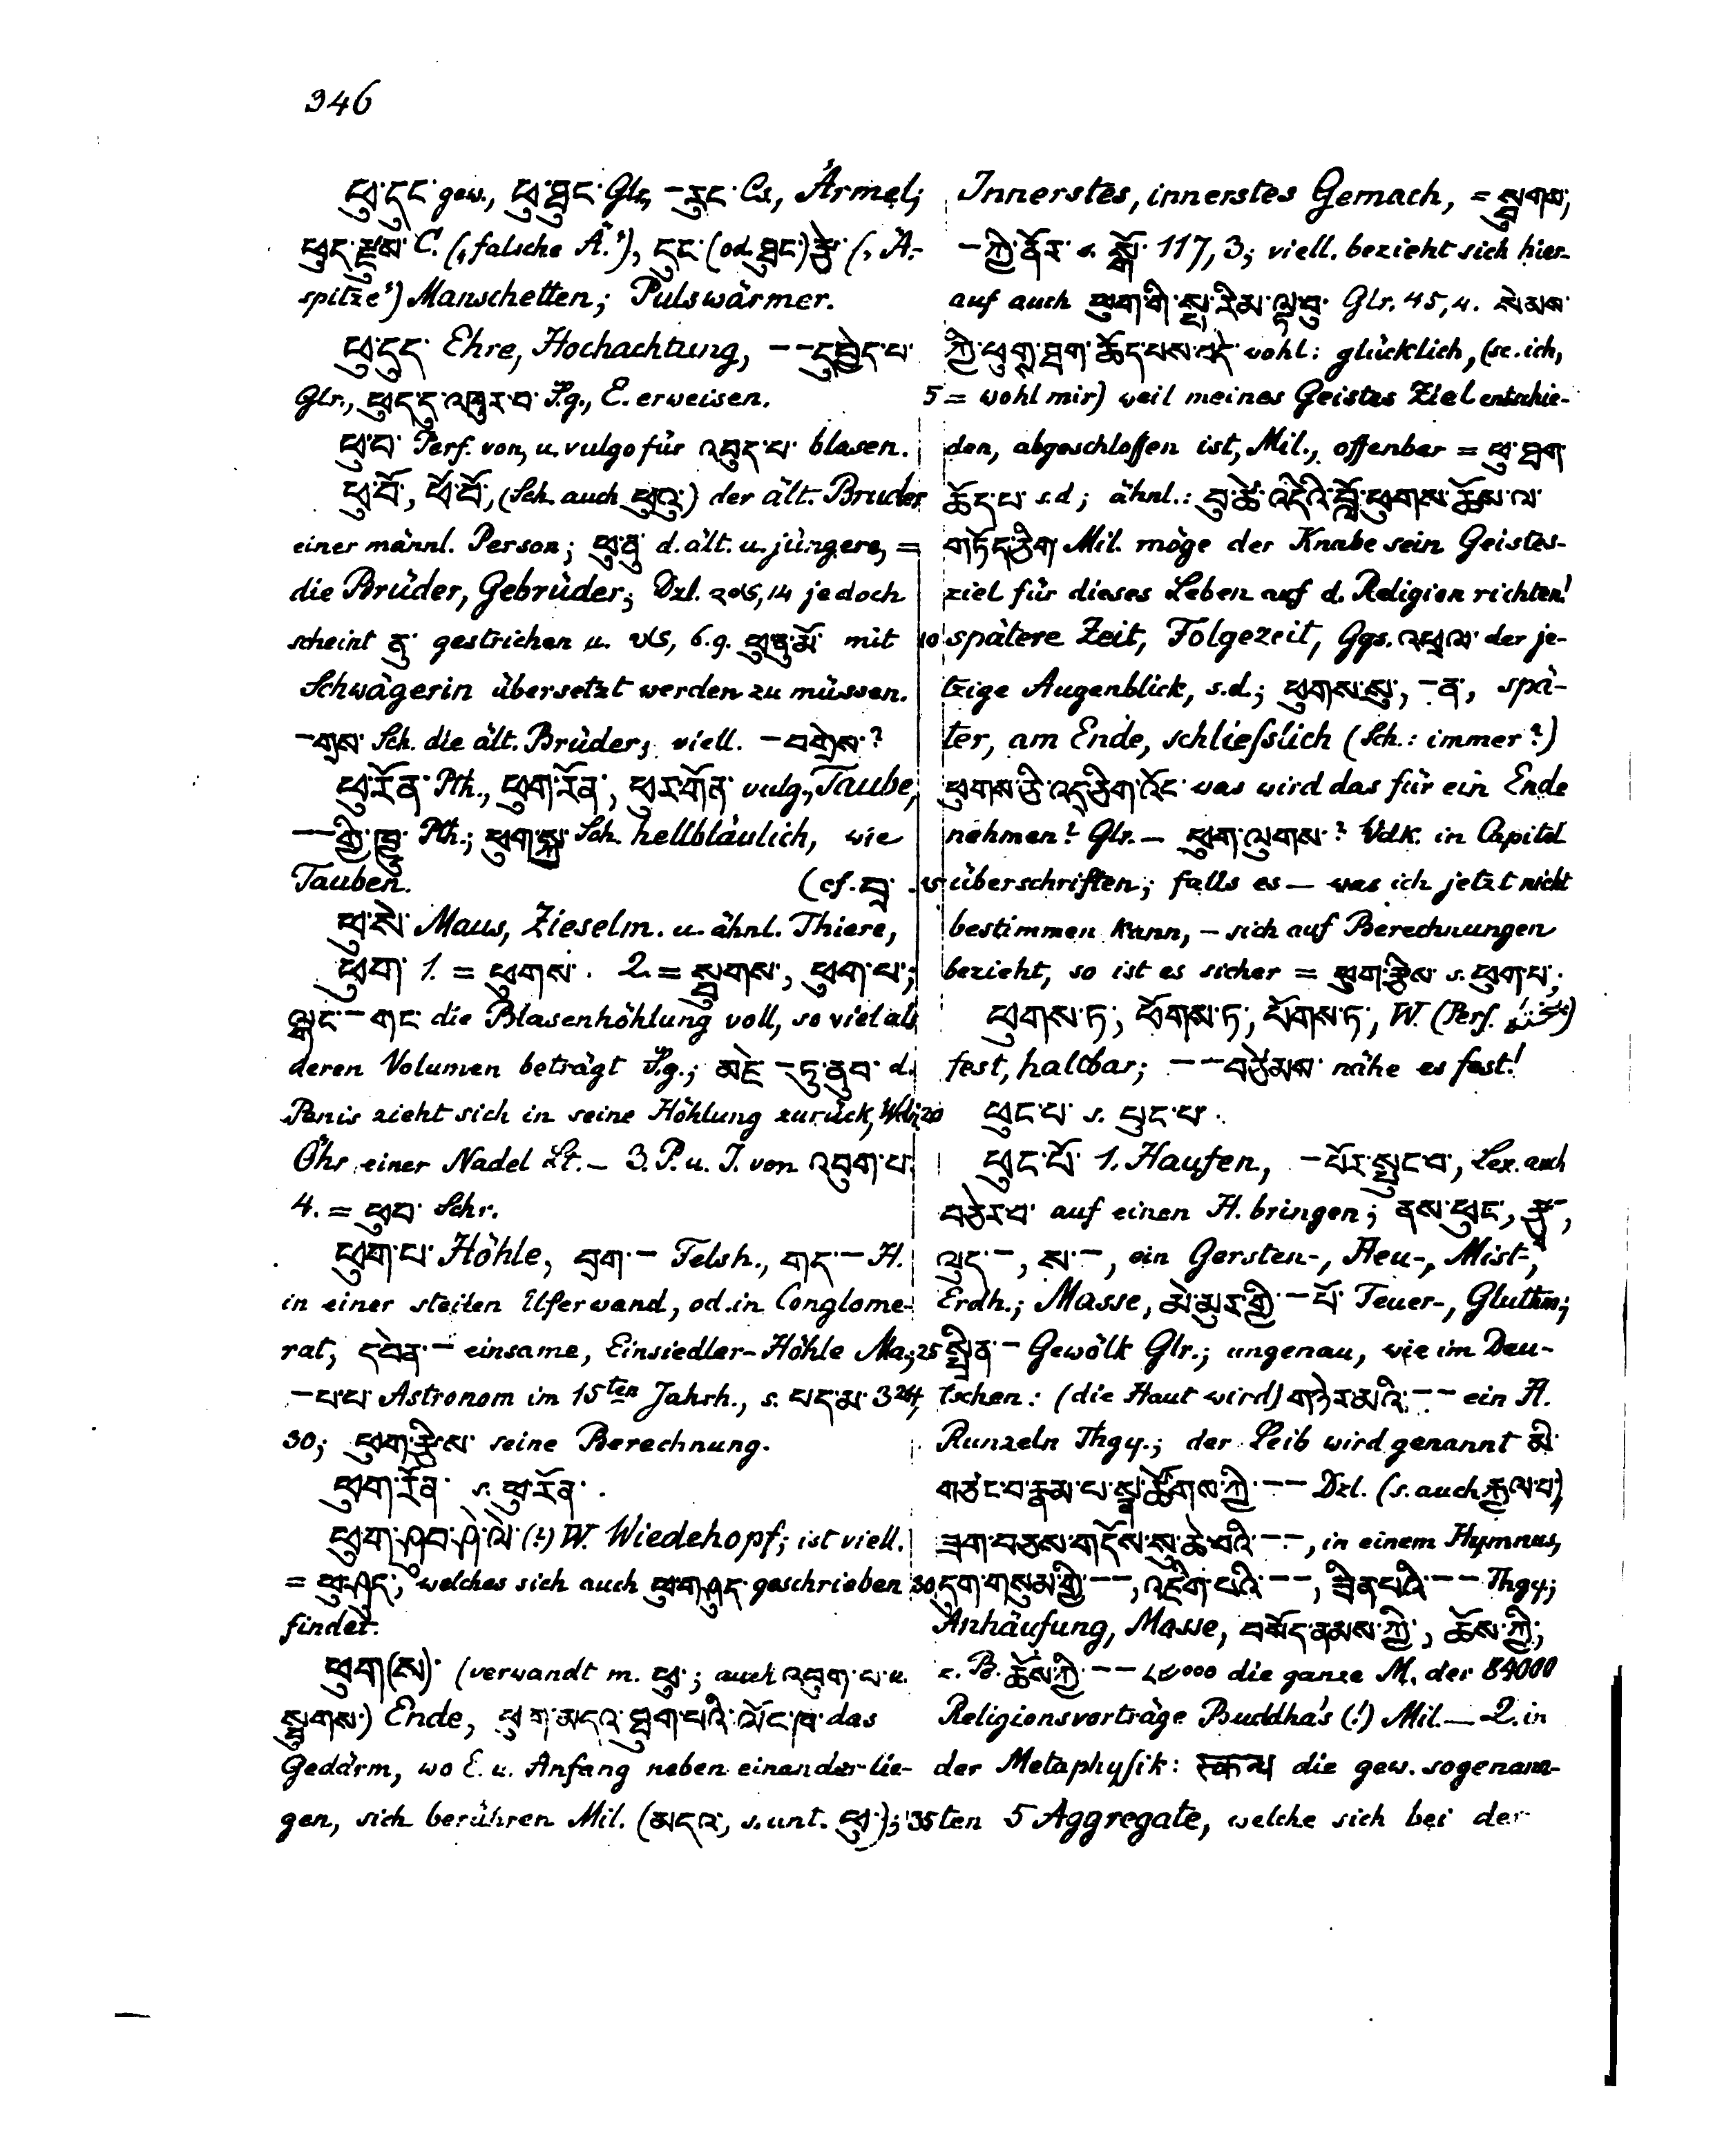 346
ཕུ་དུང་ gew., ཕུ་ཐུང་ Glr., – རུང་ Cs., Ärmel;
ཕུད་རྫུས་ C. (‚falsche Ä.'), དུང་ (od. ཐུང་) རྩེ་ (‚Ä.-
spitze') Manschetten; Pulswärmer.
ཕུ་དུད་ Ehre, Hochachtung, – – དུ་བྱེད་པ་
Glr., ཕུད་དུ་འཁུར་བ་ S.g., E. erweisen.
ཕུ་བ་ Perf. von, u. vulgo für འབུད་པ་ blasen.
ཕུ་བོ་, ཕོ་བོ་, (Sch. auch ཕུའུ་) der ält. Bruder
einer männl. Person; ཕུ་ནུ་ d. ält. u. jüngere, =
die Brüder, Gebrüder; Dzl. 14 jedoch
scheint ནུ་ gestrichen u. 6.9. ཕུ་ནུ་མོ་ mit
Schwägerin übersetzt werden zu müssen.
– གས་ Sch. die ält. Brüder; viell. – བགྲེས་?
ཕུ་རོན་ Pth., ཕུག་རོན་, ཕུར་གོན་ vulg., Taube,
– – གྱི་ཁྱུ་ Pth.; ཕུག་སྐྱ་ Sch. hellbläulich, wie
Tauben. (cf. བྲ་
ཕུ་སེ་ Maus, Zieselm. u. ähnl. Thiere,
ཕུག་ 1. = ཕུགས་. 2. = སྦུགས་, ཕུག་པ་;
ལྒང་ – གང་ die Blasenhöhlung voll, so viel als
deren Volumen beträgt S.g.; མཇེ་ – ཏུ་ནུབ་ d.
Penis zieht sich in seine Höhlung zurück,
Öhr einer Nadel Lt. – 3. P. u. I. von འབུག་པ་
4. = ཕུབ་ Schr.
ཕུག་པ་ Höhle, བྲག་ – Felsh., གད་ – H.
in einer steilen Uferwand, od. in Conglome-
rat, དབེན་ – einsame, Einsiedler-Höhle Ma.;
– པ་པ་ Astronom im 15ten Jahrh., s. པད་མ་ 324,
30; ཕུག་རྩིས་ seine Berechnung.
ཕུག་རོན་ s. ཕུ་རོན་.
ཕུག་ཤུབ་ཤེ་ལེ་ (!) W. Wiedehopf; ist viell.
= ཕུ་ཤུད་, welches sich auch ཕུ་གཤུད་ geschrieben
findet.
ཕུག(ས)་ (verwandt m. ཕུ་; auch འབུག་པ་ u.
སྦུགས་) Ende, ཕུག་མདའ་ཐུག་པའི་ལོང་ཁ་ das
Gedärm, wo E. u. Anfang neben einander lie-
gen, sich berühren Mil. (མདའ་, s. unt. ཕུ་);
Innerstes, innerstes Gemach, = སྦུགས་,
– ཀྱི་ནོར་ s. སྒོ་ 117, 3; viell. bezieht sich hier-
auf auch ཕུག་གི་སྣ་རིམ་ལྟ་བུ་ Glr. 45, 4. སེམས་
ཀྱི་ཕུགྟག་ཆོད་པས་བདེ་ wohl: glücklich, (sc. ich,
5 = wohl mir) weil meines Geistes Ziel entschie-
den, abgeschlossen ist, Mil., offenbar = ཕུ་ཐག་
ཆོད་པ་ s.d; ähnl.: བུ་ཚེ་འདིའི་བློ་ཕུགས་ཆོས་ལ་
གཏོད་ཅིག་ Mil. möge der Knabe sein Geistes-
ziel für dieses Leben auf d. Religion richten!
10 spätere Zeit, Folgezeit, Ggs. འཕྲལ་ der je-
tzige Augenblick, s.d.; ཕུགས་སུ་, – ན་, spä-
ter, am Ende, schliesslich (Sch.: immer?)
ཕུགས་ཅི་འདྲ་ཅིག་འོང་ was wird das für ein Ende
nehmen? Glr. – ཕུག་ལུགས་? Vdk. in Capitel
15 überschriften; falls es – was ich jetzt nicht
bestimmen kann, – sich auf Berechnungen
bezieht, so ist es sicher = ཕུག་རྩིས་ s. ཕུག་པ་,
ཕུགས་ཏ་, ཕོགས་ཏ་, པོགས་ཏ་, W. (Pers.
fest, haltbar; – – བཙེམས་ nähe es fest!
20 ཕུང་པ་ s. པུང་པ་.
ཕུང་པོ་ 1. Haufen, – པོར་སྤུང་བ་, Lex. auch
བཅེར་བ་ auf einen H. bringen; ནས་ཕུང་, རྩྭ་ –,
ལུད་ –, ས་ –, ein Gersten-, Heu-, Mist-,
Erdh.; Masse, མེ་མུར་གྱི་ – པོ་ Feuer-, Gluthm.;
25 སྤྲིན་ – Gewölk Glr.; ungenau, wie im Deu-
tschen: (die Haut wird) གཉེར་མའི་ – – ein H.
Runzeln Thgy.; der Leib wird genannt མི་
གཙང་བ་རྣམ་པ་སྣ་ཚོགས་ཀྱི་ – – Dzl. (s. auch རྒྱལ་བ)
ཟག་བཅས་གདོས་སུ་ཆེ་བའི་ – –, in einem Hymnus,
30 དུག་གསུམ་གྱི་ – –, འཇིག་པའི་ – –, ཟིན་པའི་ – – Thgy.;
Anhäufung, Masse, བསོད་ནམས་ཀྱི་, ཆོས་ཀྱི་,
z.B. ཆོས་ཀྱི་ – – ༨༤༠༠༠ die ganze M. der 84000
Religionsvorträge Buddha's (!) Mil. – 2. in
der Metaphysik: स्कन्ध die gew. sogenann-
35 ten 5 Aggregate, welche sich bei der